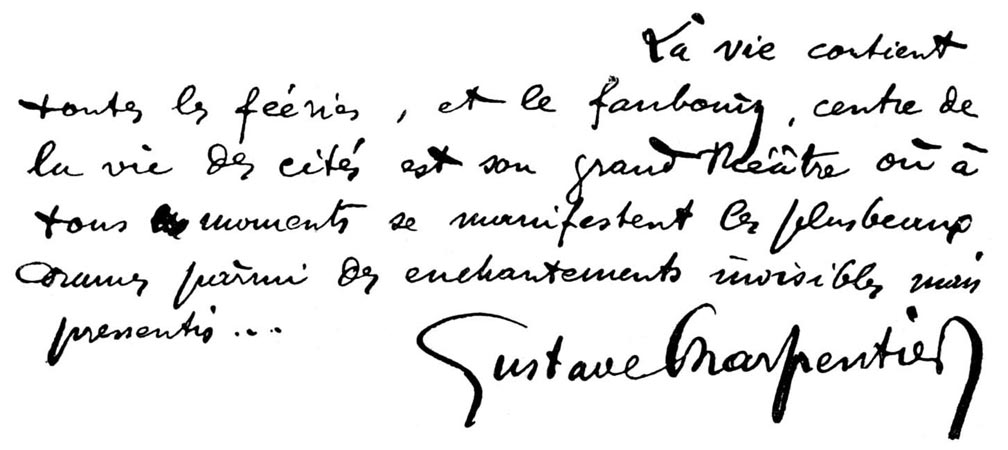 La vie contient
toutes les féeries, et le faubourg, centre de
la vie des cités est son grand théâtre où à
tous moments se manifestent les plus beaux
drames parmi des enchantements invisibles mais
pressentis...
Gustave Charpentier